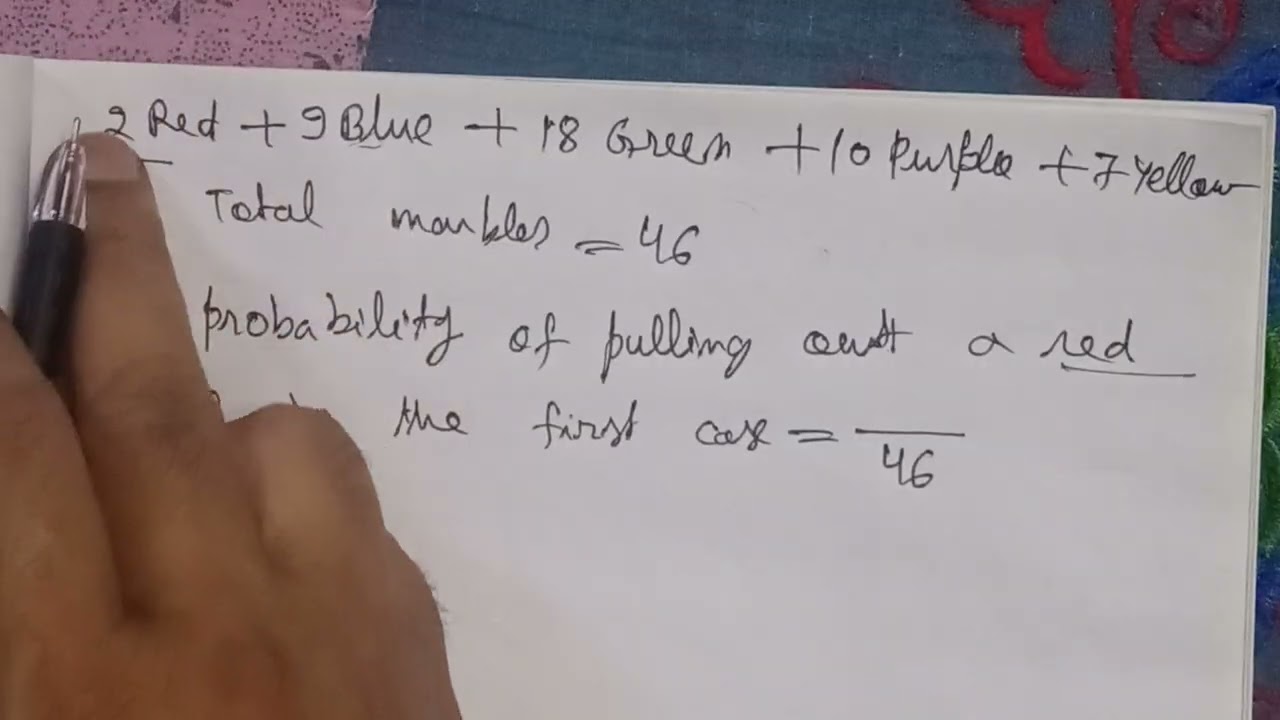 2 Red + 9 Blue + 18 Green + 10 Purple + 7 Yellow
Total marbles = 46
probability of pulling out a red
the first case = /46